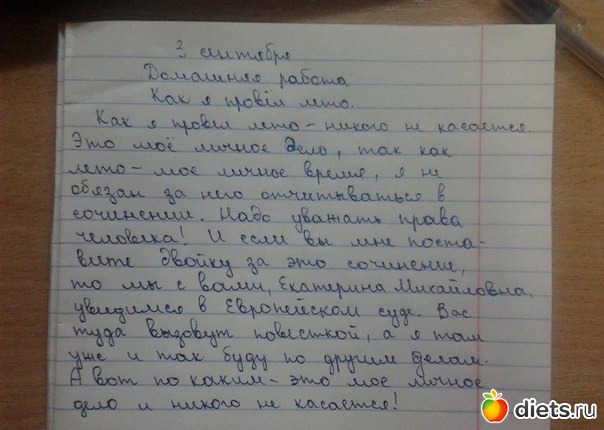 3 сентября
Домашняя работа
Как я провёл лето.
Как я провёл лето - никого не касается.
Это моё личное дело, так как
лето - мое личное время, я не
обязан за него отчитываться в
сочинении. Надо уважать права
человека! И если вы мне поста-
вите двойку за это сочинение,
то мы с вами, Екатерина Михайловна,
увидимся в Европейском суде. Вас
туда вызовут повесткой, а я там
уже и так буду по другим делам.
А вот по каким - это мое личное
дело и никого не касается!
diets.ru